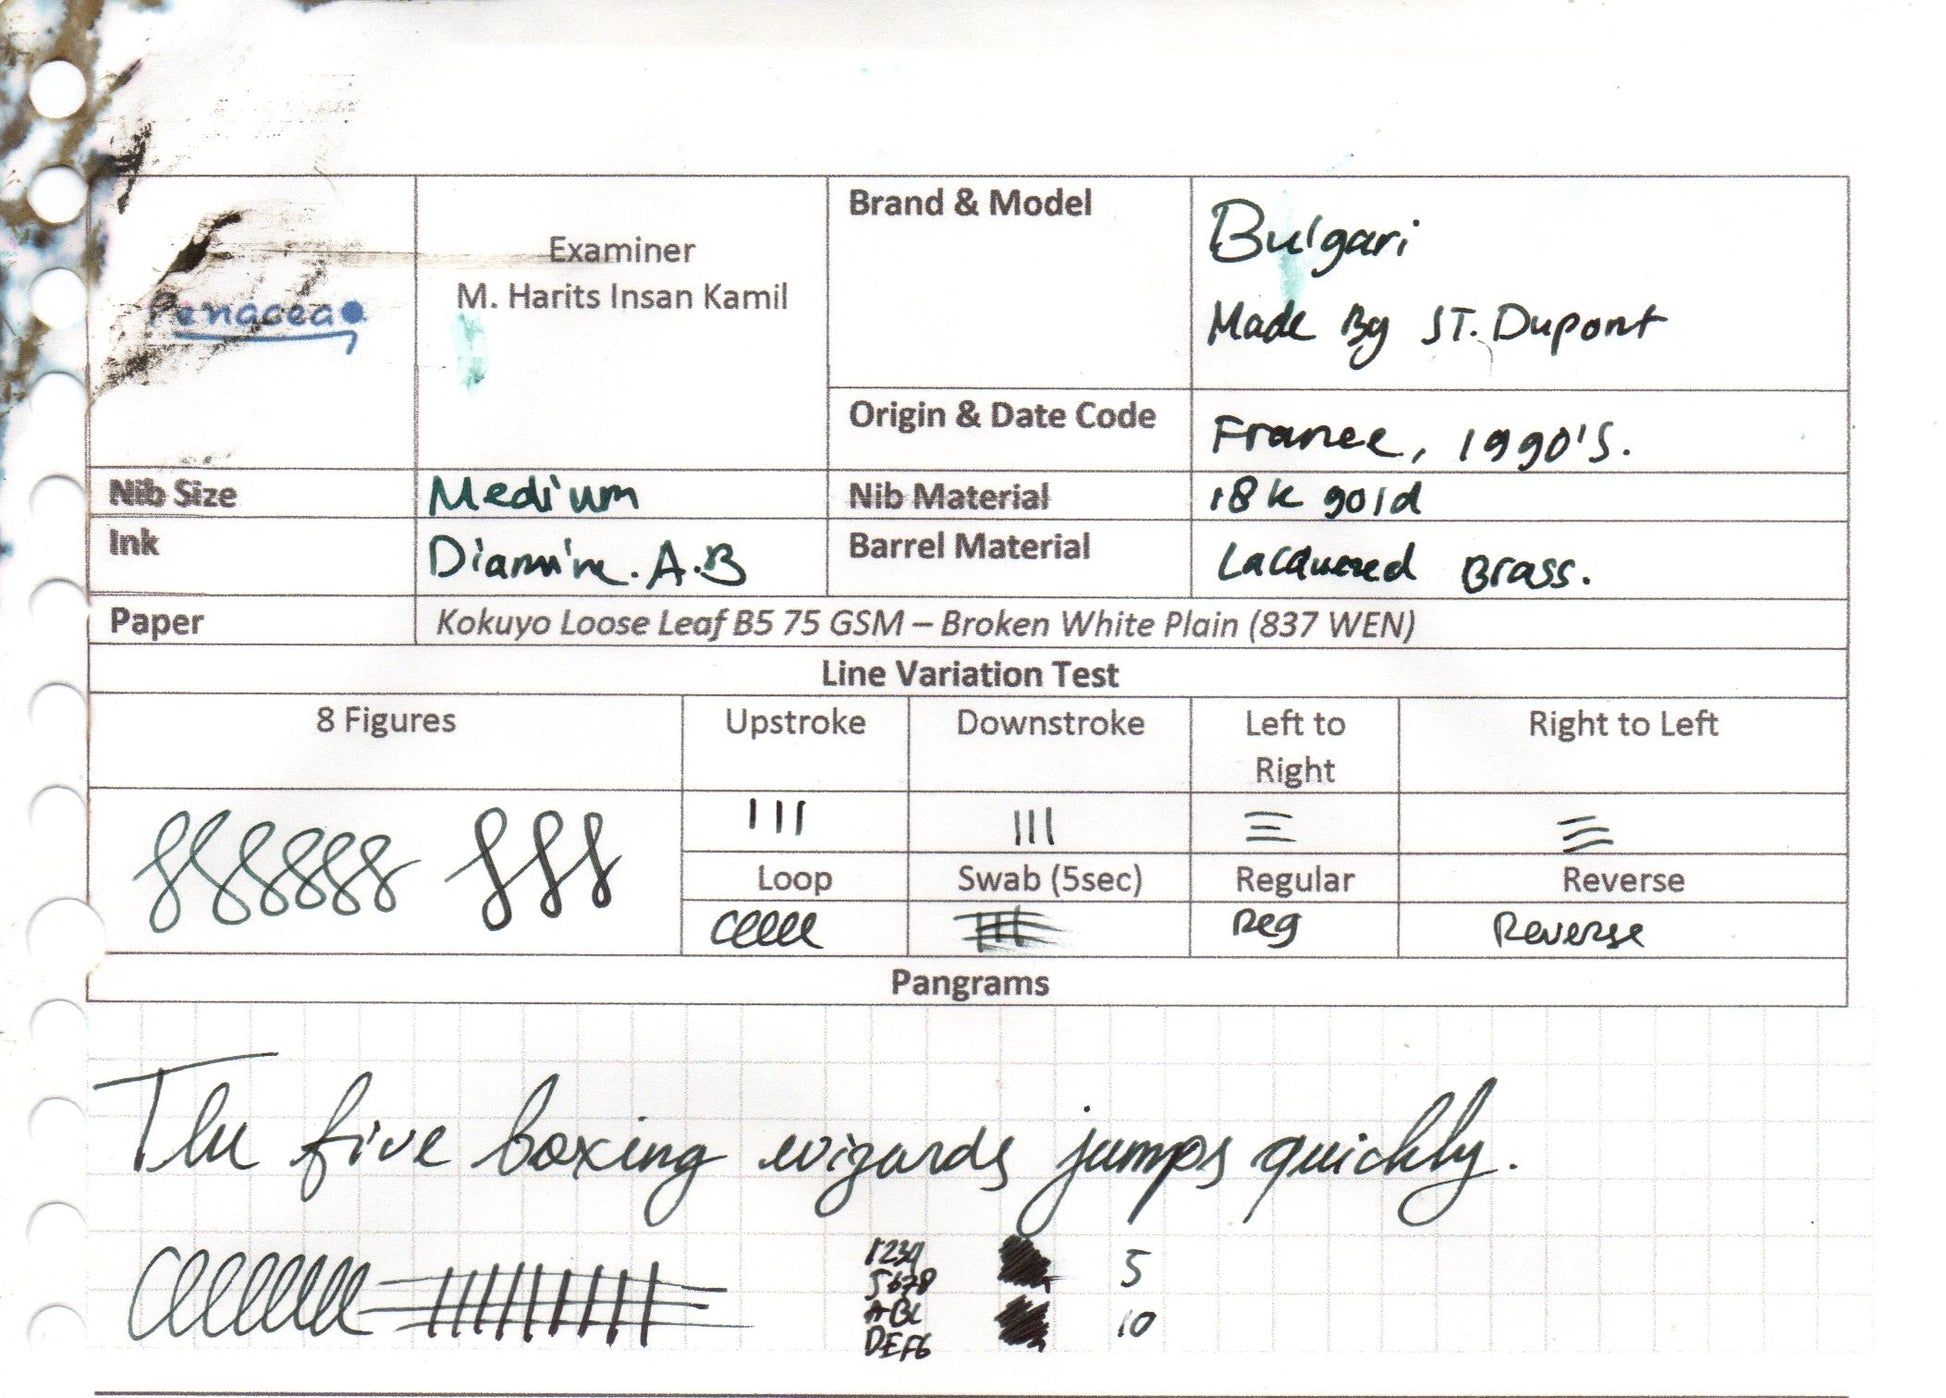 Penacea
Examiner
M. Harits Insan Kamil
Brand & Model
Bulgari
Made By ST. Dupont
Origin & Date Code
France, 1990's.
Nib Size
Medium
Nib Material
18k gold
Ink
Diamine. A.B
Barrel Material
Lacquered Brass.
Paper
Kokuyo Loose Leaf B5 75 GSM – Broken White Plain (837 WEN)
Line Variation Test
8 Figures
Upstroke
Downstroke
Left to
Right
Right to Left
Loop
Swab (5sec)
Regular
Reverse
Reg
Reverse
Pangrams
The five boxing wizards jumps quickly.
1234
5678
ABC
DEFG
5
10